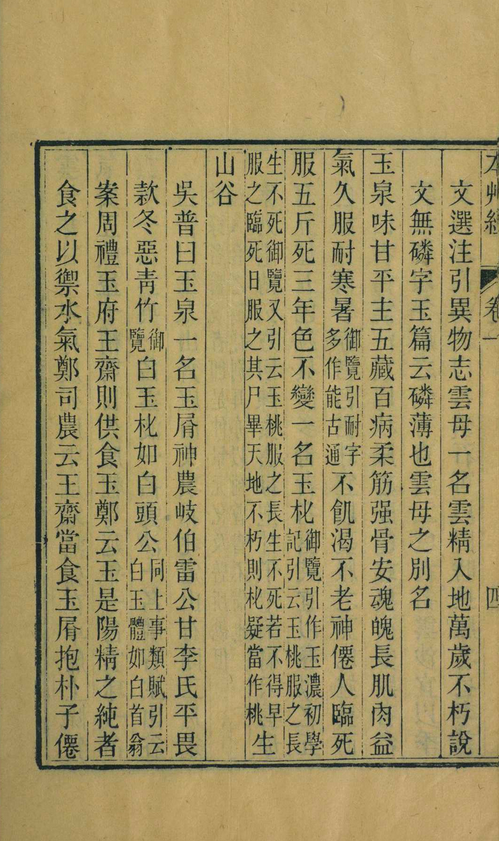 本艸經 卷一 四
文選注引異物志雲母一名雲精入地萬歲不朽說
文無磷字玉篇云磷薄也雲母之別名
玉泉味甘平主五藏百病柔筋强骨安魂魄長肌肉益
氣久服耐寒暑御覽引耐字多作能古通不飢渴不老神僊人臨死
服五斤死三年色不變一名玉朼御覽引作玉濃初學記引云玉桃服之長
生不死御覽又引云玉桃服之長生不死若不得早服之臨死日服之其尸畢天地不朽則朼疑當作桃生
山谷
吳普曰玉泉一名玉屑神農岐伯雷公甘李氏平畏
款冬惡青竹御覽白玉朼如白頭公同上事類賦引云白玉體如白首翁
案周禮玉府王齋則供食玉鄭云玉是陽精之純者
食之以禦水氣鄭司農云王齋當食玉屑抱朴子僊